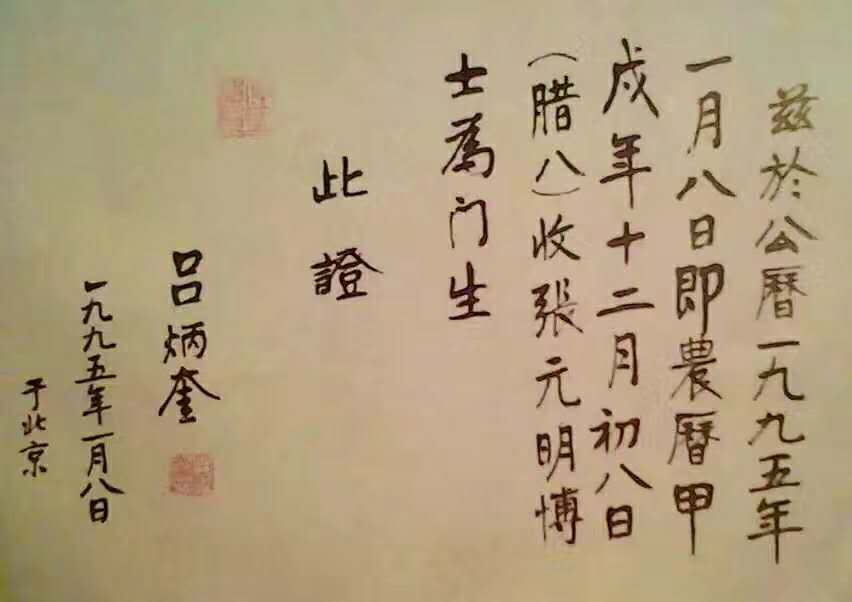 兹於公曆一九九五年
一月八日即農曆甲
戌年十二月初八日
（腊八）收張元明愽
士為门生
此證
吕炳奎
一九九五年一月八日
于北京